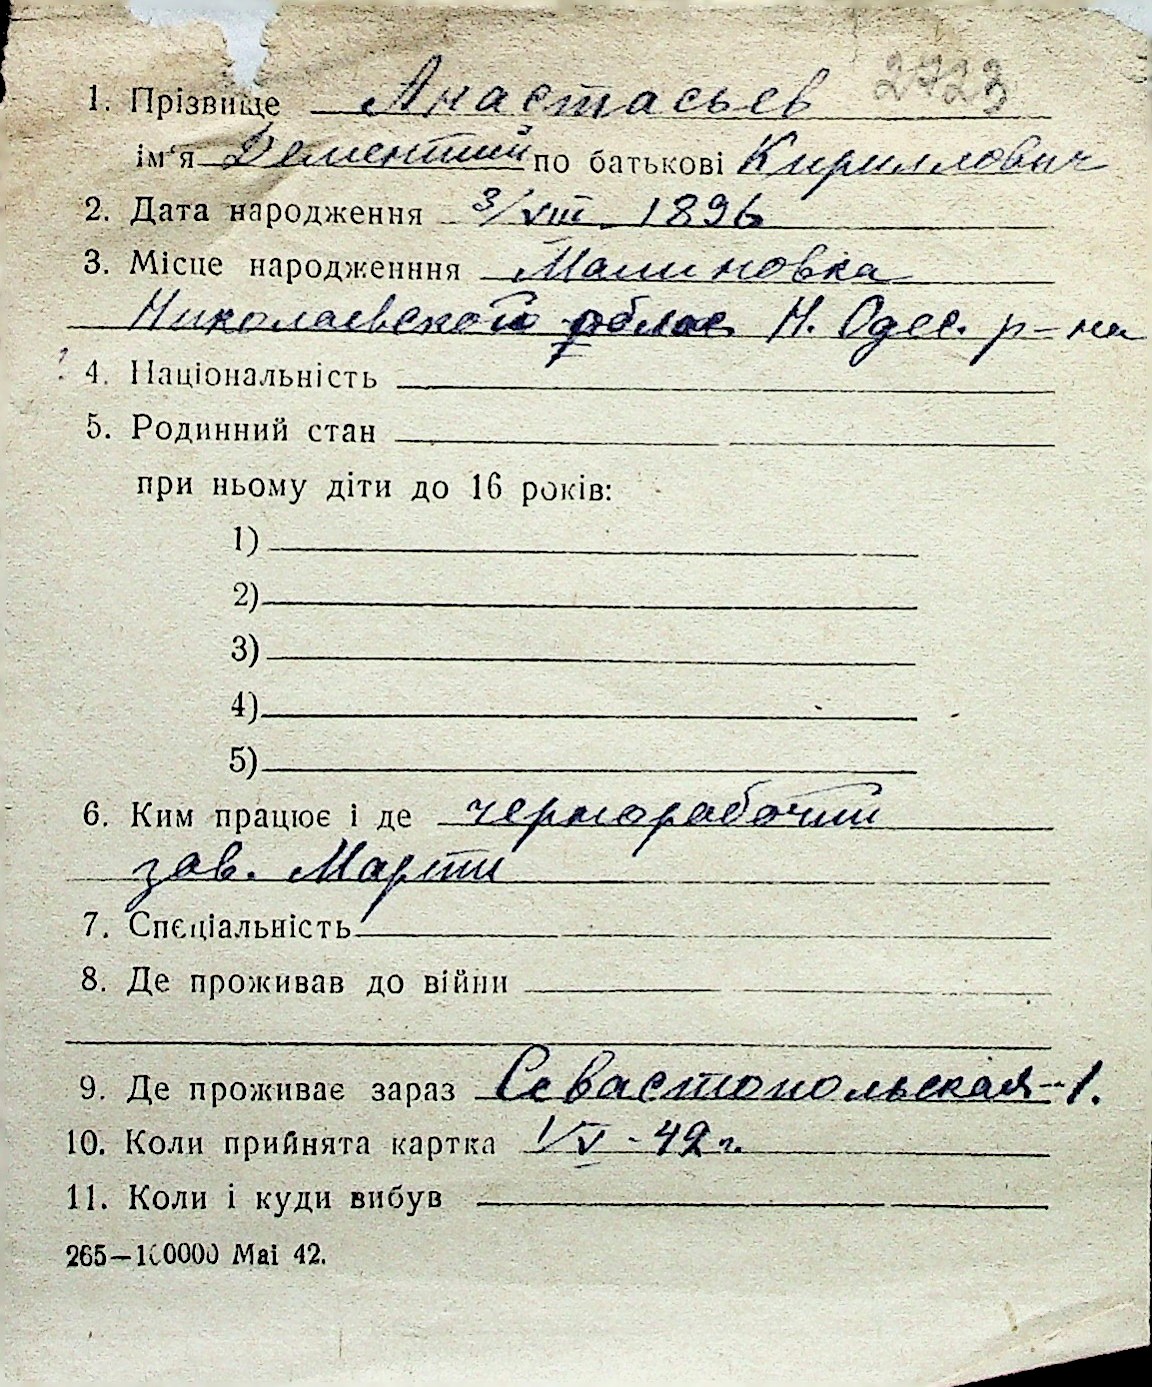 2723
1. Прізвище Анастасьев
ім'я Дементий по батькові Кириллович
2. Дата народження 3/VIII 1896
3. Місце народженння Малиновка
Николаевской облас. Н. Одес. р-на
4. Національність
5. Родинний стан
при ньому діти до 16 років:
1)
2)
3)
4)
5)
6. Ким працює і де чернорабочий
зав. Марти
7. Спєціальність
8. Де проживав до війни
9. Де проживає зараз Севастопольская-1.
10. Коли прийнята картка 1/V-42 г.
11. Коли і куди вибув
265—100000 Mai 42.